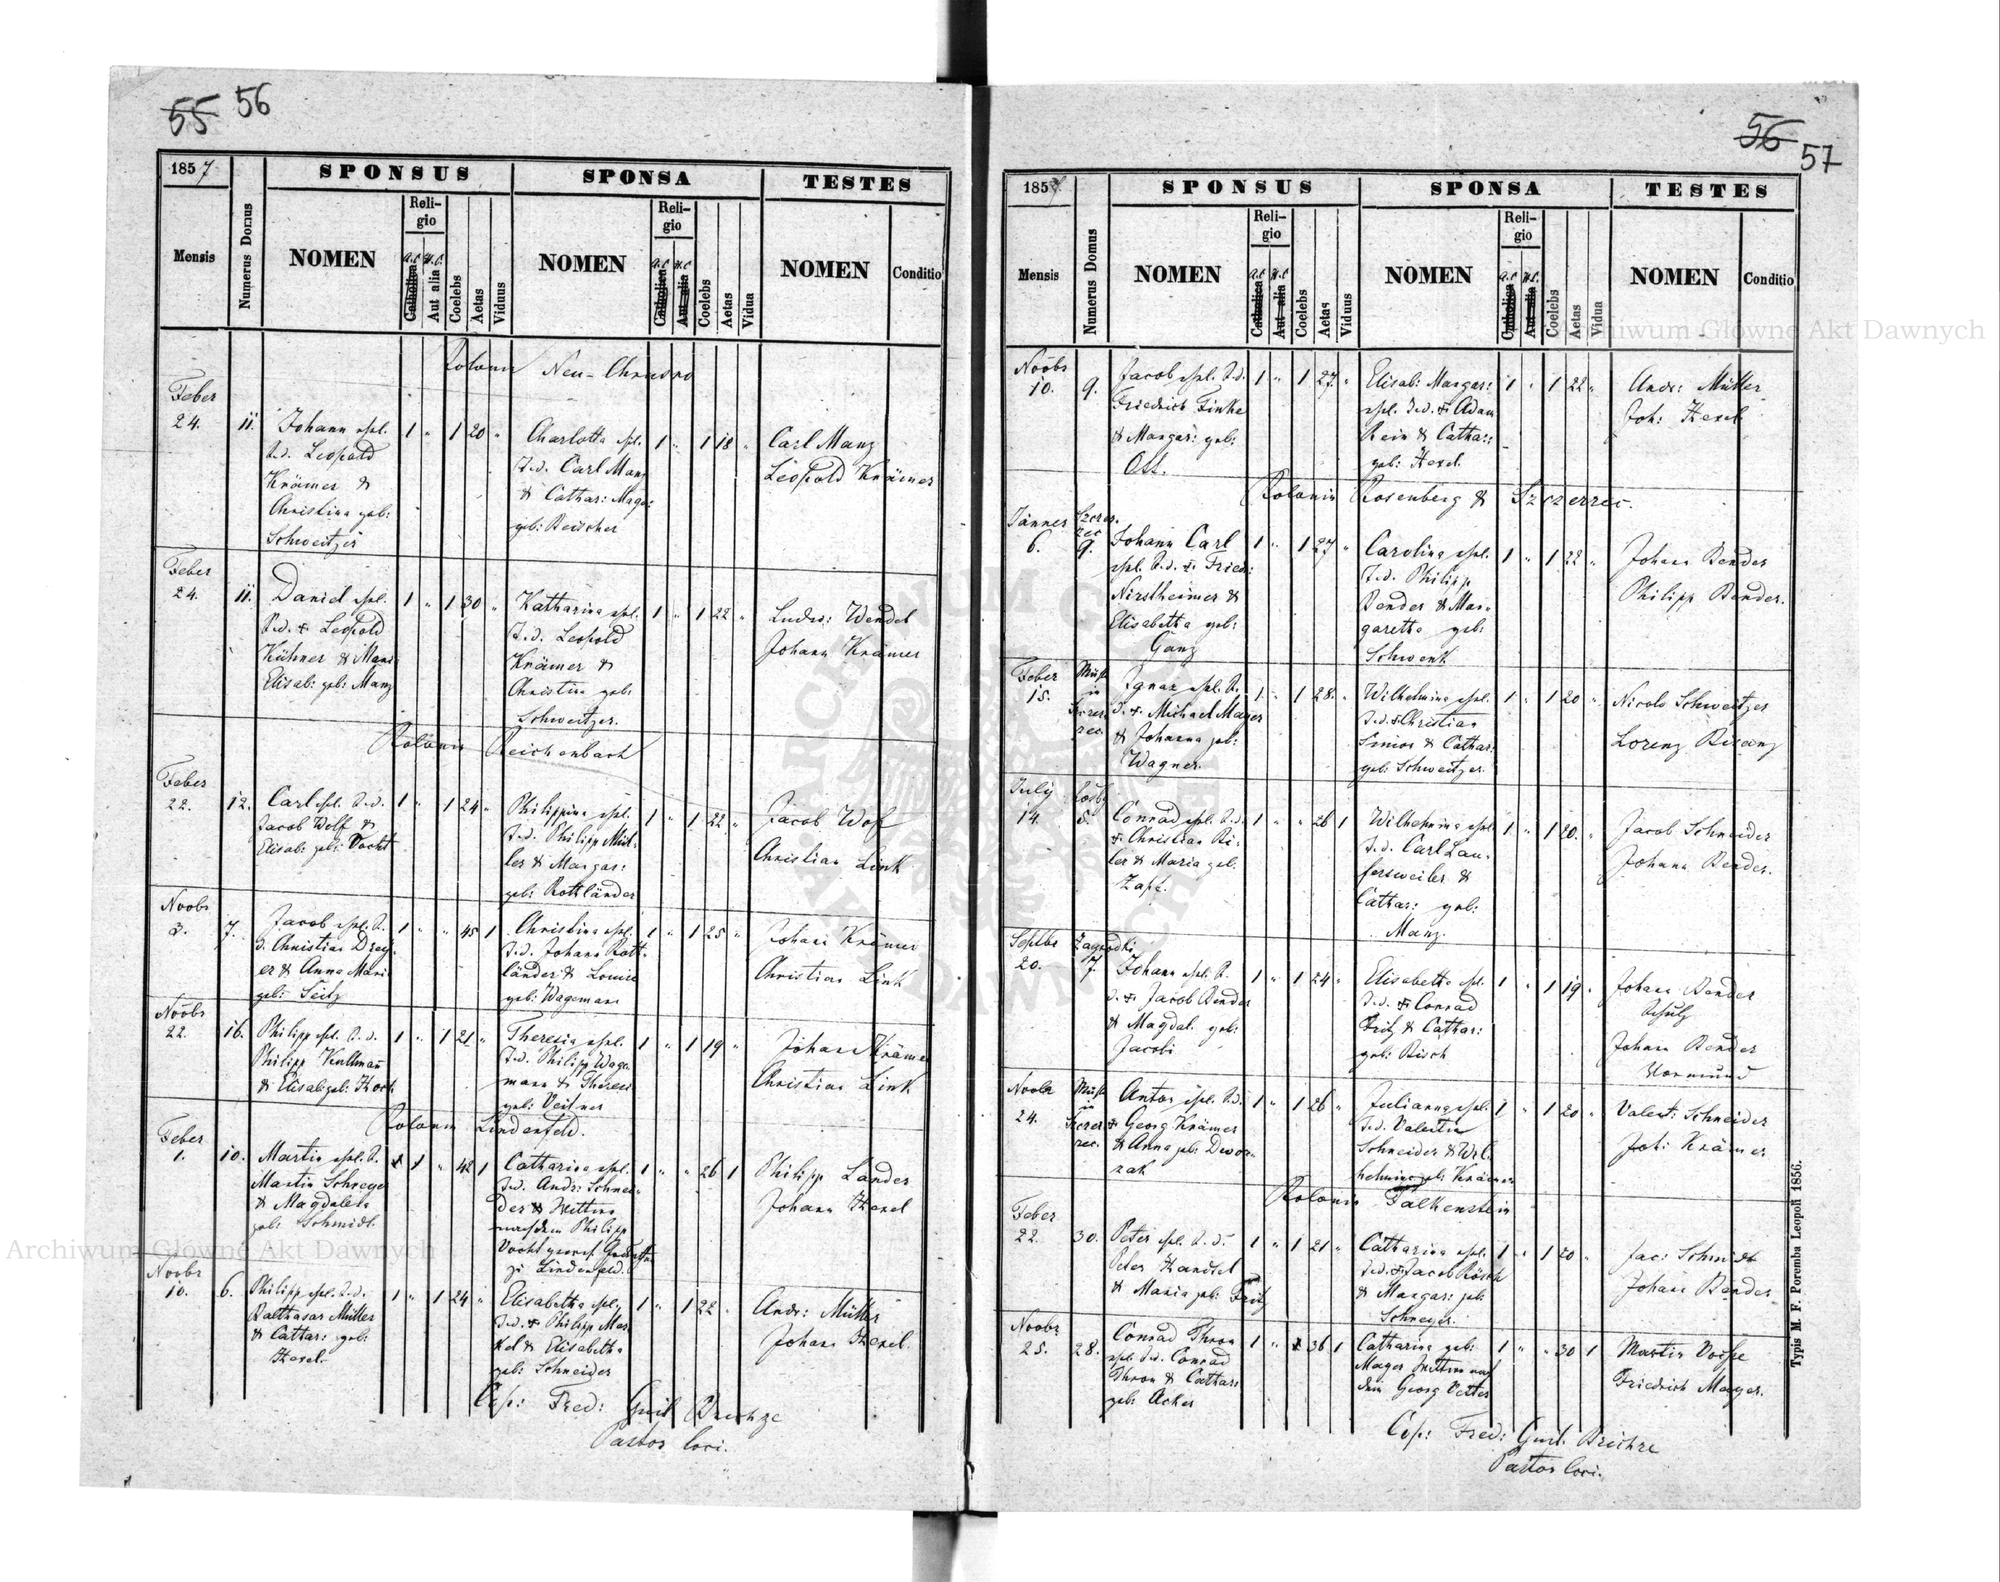 55 56
1857
SPONSUS
SPONSA
TESTES
Mensis
Numerus Domus
NOMEN
Religio
A.C. Catholica
H.C. Aut alia
Coelebs
Aetas
Viduus
NOMEN
Religio
A.C. Catholica
H.C. Aut alia
Coelebs
Aetas
Vidua
NOMEN
Conditio
Kolonie Neu-Chrusno
Feber
24. 11. Johann ehl. 1 " 1 20 " Charlotta ehl. 1 " 1 18 " Carl Manz
S. d. Leopold T. d. Carl Manz Leopold Krämer
Krämer & & Cathar: Marga:
Christina geb: geb: Beischer
Schweitzer
Feber
24. 11. Daniel ehl. 1 " 1 30 " Katharina ehl. 1 " 1 22 " Ludw: Wendel
S. d. + Leopold T. d. Leopold Johann Krämer
Kühner & Mari Krämer &
Elisab: geb: Manz Christina geb:
Schweitzer.
Kolonie Reichenbach
Feber
22. 12. Carl ehl. S. d. 1 " 1 24 " Philippina ehl. 1 " 1 22 " Jacob Wolf
Jacob Wolf & T. d. Philipp Mül- Christian Link
Elisab: geb: Vocht ler & Margar:
geb: Rottländer
Novbr
3. 7. Jacob ehl. S. 1 " " 45 1 Christina ehl. 1 " 1 25 " Johann Krämer
d. Christian Drey T. d. Johann Rott- Christian Link
er & Anna Mari länder & Louise
geb: Seitz geb: Wagemann
Novbr
22. 16. Philipp ehl. S. d. 1 " 1 21 " Theresia ehl. 1 " 1 19 " Johann Krämer
Philipp Kullmañ T. d. Philipp Wage Christian Link
& Elisab: geb: Koch mann & Theresi
geb: Veitner
Kolonie Lindenfeld.
Feber
1. 10. Martin ehl. S. " 42 1 Catharina ehl. 1 " " 26 1 Philipp Lander
Martin Schreyer T. d. Andr: Schnei- Johann Hexel
& Magdalena der & Wittwe
geb: Schmidt. nach dem Philipp
Vocht
zu Lindenfeld.
Novbr
10. 6. Philipp ehl. S. d. 1 " 1 24 " Elisabetha ehl. 1 " 1 22 " Andr: Müller
Balthasar Müller T. d. + Philipp Mer Johann Hexel.
& Cathar: geb: kel & Elisabetha
Hexel. geb: Schneider
Cop: Fred: Guil Brechze
Pastor loci.
56 57
1857
SPONSUS
SPONSA
TESTES
Mensis
Numerus Domus
NOMEN
Religio
A.C. Catholica
H.C. Aut alia
Coelebs
Aetas
Viduus
NOMEN
Religio
A.C. Catholica
H.C. Aut alia
Coelebs
Aetas
Vidua
NOMEN
Conditio
Novbr
10. 9. Jacob ehl. S. d. 1 " 1 27 " Elisab: Margar: 1 " 1 22 " Andr: Müller
Friedrich Finke ehl. T. d. + Adam Joh: Hexel
& Margar: geb: Rein & Cathar:
Ott. geb: Hexel.
Kolonie Rosenberg & Szczerzec.
Jänner Szczerzec
6. 9. Johann Carl 1 " 1 27 " Carolina ehl. 1 " 1 22 " Johann Bender
ehl. S. d. + Fried: T. d. Philipp Philipp Bender.
Nirstheimer & Bender & Mar-
Elisabetha geb: garetha geb:
Ganz Schwenk
Feber
15. Ignaz ehl. S. 1 " 1 28 " Wilhelmina ehl. 1 " 1 20 " Nicola Schweitzer
d. + Michael Mayer T. d. + Christian Lorenz Bisanz
& Johanna geb: Simior & Cathar:
Wagner. geb: Schweitzer.
July
14. 5. Conrad ehl. S. d. 1 " " 26 1 Wilhelmina ehl. 1 " 1 20. " Jacob Schneider
+ Christian Bi- T. d. Carl Lau- Johann Bender.
ler & Maria geb. fersweiler &
Zapf. Cathar: geb:
Manz.
Septbr Zagrodki
20. 7. Johann ehl. S. 1 " 1 24 " Elisabetha ehl. 1 " 1 19 " Johann Bender
d. + Jacob Bender T. d. + Conrad Schulz
& Magdal. geb: Fritz & Cathar: Johann Bender
Jacobi geb: Risch Vormund
Novbr
24. Anton ehl. S. d. 1 " 1 26 " Julianna ehl. 1 " 1 20 " Valent: Schneider
+ Georg Krämer T. d. Valentin Joh: Krämer
& Anna geb: Dwor- Schneider & Wil
zak helmina geb: Krämer
Kolonie Falkenstein
Feber
22. 30. Peter ehl. S. d. 1 " 1 21 " Catharina ehl. 1 " 1 20 " Jac: Schmidt
Peter Handel T. d. + Jacob Rösch Johann Bender
& Maria geb: Fritz & Margar: geb:
Schreyer.
Novbr
25. 28. Conrad Thron 1 " 36 1 Catharina geb: 1 " " 30 1 Martin Vosse
ehl. S. d. Conrad Mayer Wittwe nach Friedrich Mayer.
Thron & Cathar: dem Georg Vetter
geb: Acker
Cop: Fred: Guil. Brechze
Pastor loci.
Typis M. F. Poremba Leopoli 1856.
Archiwum Główne Akt Dawnych
Archiwum Główne Akt Dawnych
ARCHIWUM GŁÓWNE AKT DAWNYCH